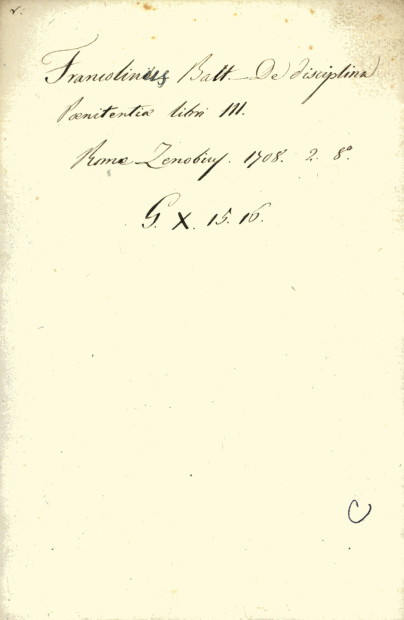 v.
Francolinus Batt. De disciplina
Pœnitentiæ libri III.
Romæ Zenobius. 1708. 2. 8°
G. X. 15. 16.
C